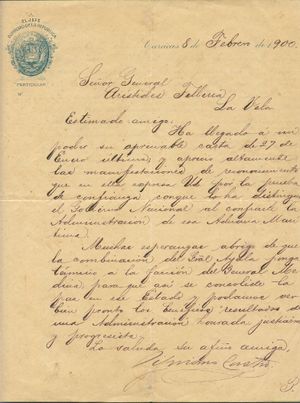 EL JEFE
SUPREMO DE LA REPUBLICA
PARTICULAR
Nº
Caracas 8 de Febrero de 1900.
Señor General
Arístides Tellería
La Vela
Estimado amigo:
Ha llegado á mi
poder su apreciable carta de 27 de
Enero último; y aprecio altamente
las manifestaciones de reconocimiento
que en ella expresa Ud por la prueba
de confianza conque lo ha distinguido
el Gobierno Nacional al confiarle la
Administracion de esa Aduana Marí-
tima.
Muchas esperanzas abrigo de que
la combinación del Gral Ayala ponga
término á la facción del General
para que así se consolide la
paz en ese Estado y podamos ver
bien pronto los resultados de
una Administración honrada, justiciera
y progresista.
Lo saluda su afmo amigo,
Cipriano Castro